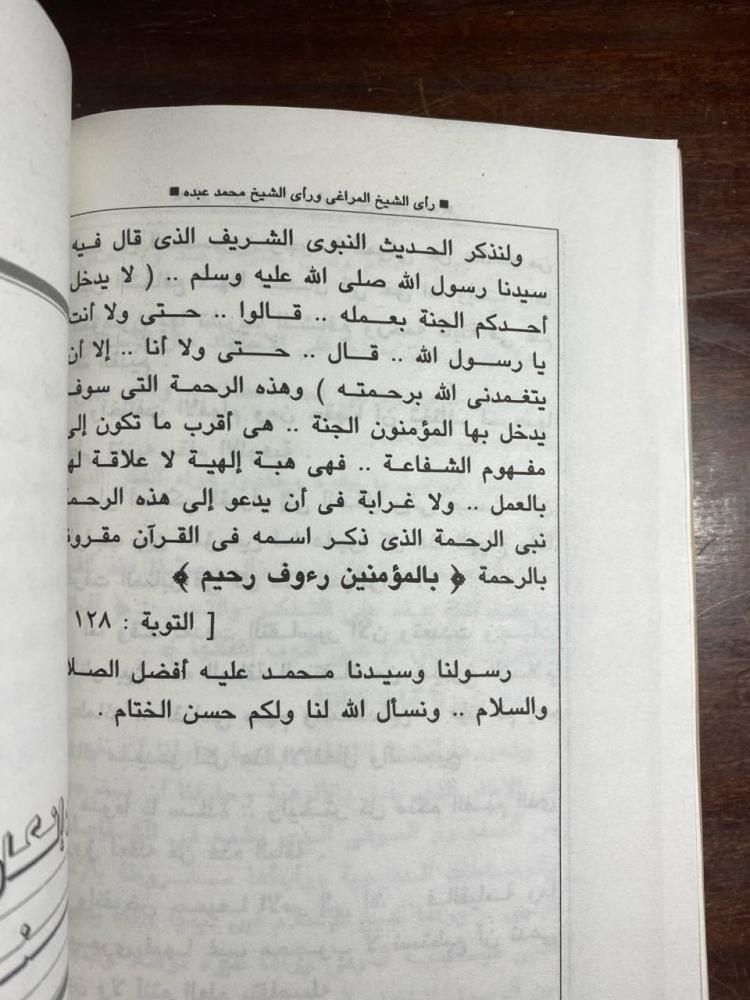 ■ رأى الشيخ المراغى ورأى الشيخ محمد عبده ■
ولنذكر الحديث النبوى الشريف الذى قال فيه
سيدنا رسول الله صلى الله عليه وسلم .. ( لا يدخل
أحدكم الجنة بعمله .. قالوا .. حتى ولا أنت
يا رسول الله .. قال .. حتى ولا أنا .. إلا أن
يتغمدنى الله برحمته ) وهذه الرحمة التى سوف
يدخل بها المؤمنون الجنة .. هى أقرب ما تكون إلى
مفهوم الشفاعة .. فهى هبة إلهية لا علاقة لها
بالعمل .. ولا غرابة فى أن يدعو إلى هذه الرحمة
نبى الرحمة الذى ذكر اسمه فى القرآن
بالرحمة ﴿ بالمؤمنين رءوف رحيم ﴾
[ التوبة : ١٢٨
رسولنا وسيدنا محمد عليه أفضل
والسلام .. ونسأل الله لنا ولكم حسن الختام .